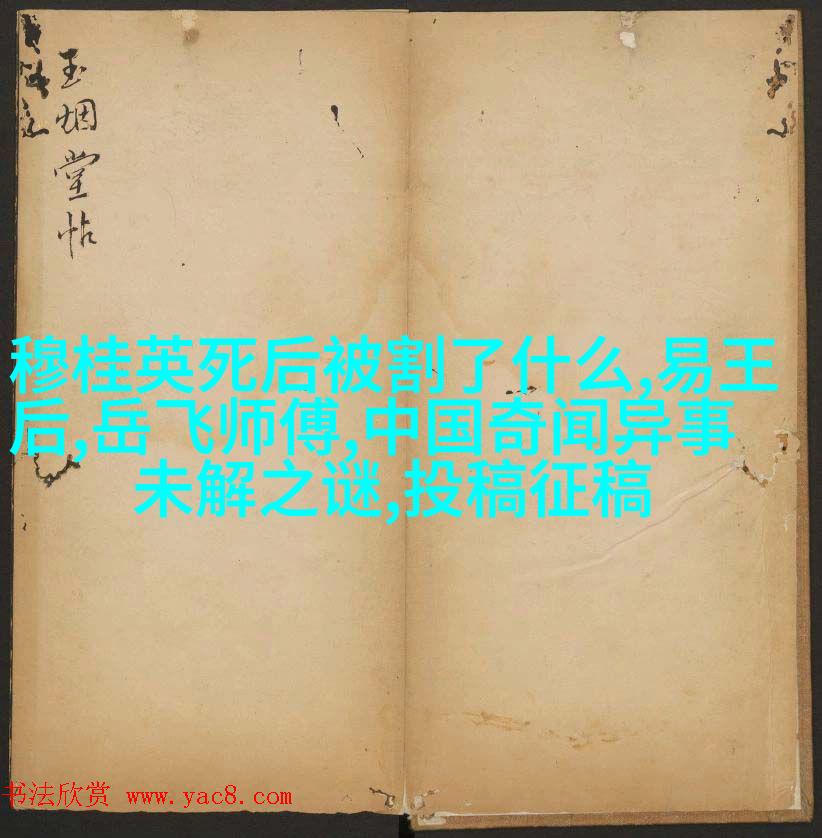 玉烟堂帖
穆桂英死后被割了什么,易王
后,岳飞师傅,中国奇闻异事
未解之谜,投稿征稿
书法欣赏 www.yac8.com